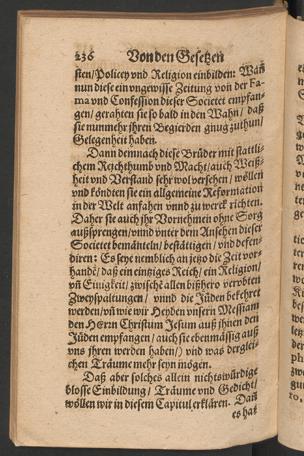 236 Von den Gesetzen
sten/Policey vnd Religion einbilden: Wañ
nun diese ein vngewisse Zeitung von der Fa-
ma vnd Confession dieser Societet empfan-
gen/ gerahten sie so bald in den Wahn/ daß
sie nunmehr jhren Begierden gnug zuthun/
Gelegenheit haben.
Dann demnach diese Brüder mit stattli-
chem Reichthumb vnd Macht/ auch Weiß-
heit vnd Verstand sehr wol versehen/ wöllen
vnd köndten sie ein allgemeine Reformation
in der Welt anfahen vnnd zu werck richten.
Daher sie auch jhr Vornehmen ohne Sorg
außsprengen/ vnnd vnter dem Ansehen dieser
Societet bemänteln/ bestättigen/ vnd defen-
diren: Es seye nemblich an jetzo die Zeit vor-
handẽ/ daß ein eintziges Reich/ ein Religion/
vñ Einigkeit/ zwischẽ allen bißhero verübten
Zweyspaltungen/ vnnd die Jüden bekehret
werden/ vñ wie wir Heyden vnsern Messiam
den HErrn Christum Jesum auß jhnen den
Jüden empfangen/ auch sie ebenmässig auß
vns jhren werden haben/) vnd was derglei-
chen Träume mehr seyn mögen.
Daß aber solches allein nichtswürdige
blosse Einbildung/ Träume vnd Gedicht/
wöllen wir in diesem Capitul erklären. Dañ
es hat